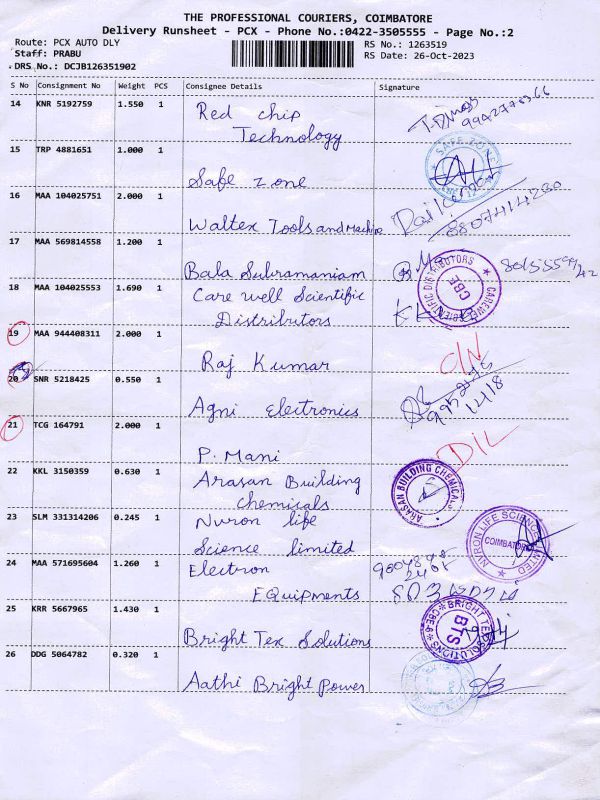 THE PROFESSIONAL COURIERS, COIMBATORE
Delivery Runsheet - PCX - Phone No.:0422-3505555 - Page No.:2
Route: PCX AUTO DLY
RS No.: 1263519
Staff: PRABU
RS Date: 26-Oct-2023
DRS No.: DCJB126351902
S No Consignment No Weight PCS Consignee Details Signature
14 KNR 5192759 1.550 1 Red chip
Technology
15 TRP 4881651 1.000 1
Safe zone
SAFE ZONE
16 MAA 104025751 2.000 1
Waltex Tools and Machine
8807414230
17 MAA 569814558 1.200 1
Bala Subramaniam
18 MAA 104025553 1.690 1 Care well Scientific
Distributors
CAREWELL SCIENTIFIC DISTRIBUTORS
CBE
19 MAA 944408311 2.000 1
Raj Kumar
20 SNR 5218425 0.550 1
Agni Electronics
21 TCG 164791 2.000 1
P. Mani
D/L
22 KKL 3150359 0.630 1 Arasan Building
Chemicals
ARASAN BUILDING CHEMICALS
23 SLM 331314206 0.245 1 Nuron life
Science limited
NVRON LIFE SCIENCE LIMITED
COIMBATORE
24 MAA 571695604 1.260 1 Electron
EQuipments
25 KRR 5667965 1.430 1
Bright Tex Solutions
BRIGHT TEX SOLUTIONS
BTS
CBE-6
26 DDG 5064782 0.320 1
Aathi Bright Power